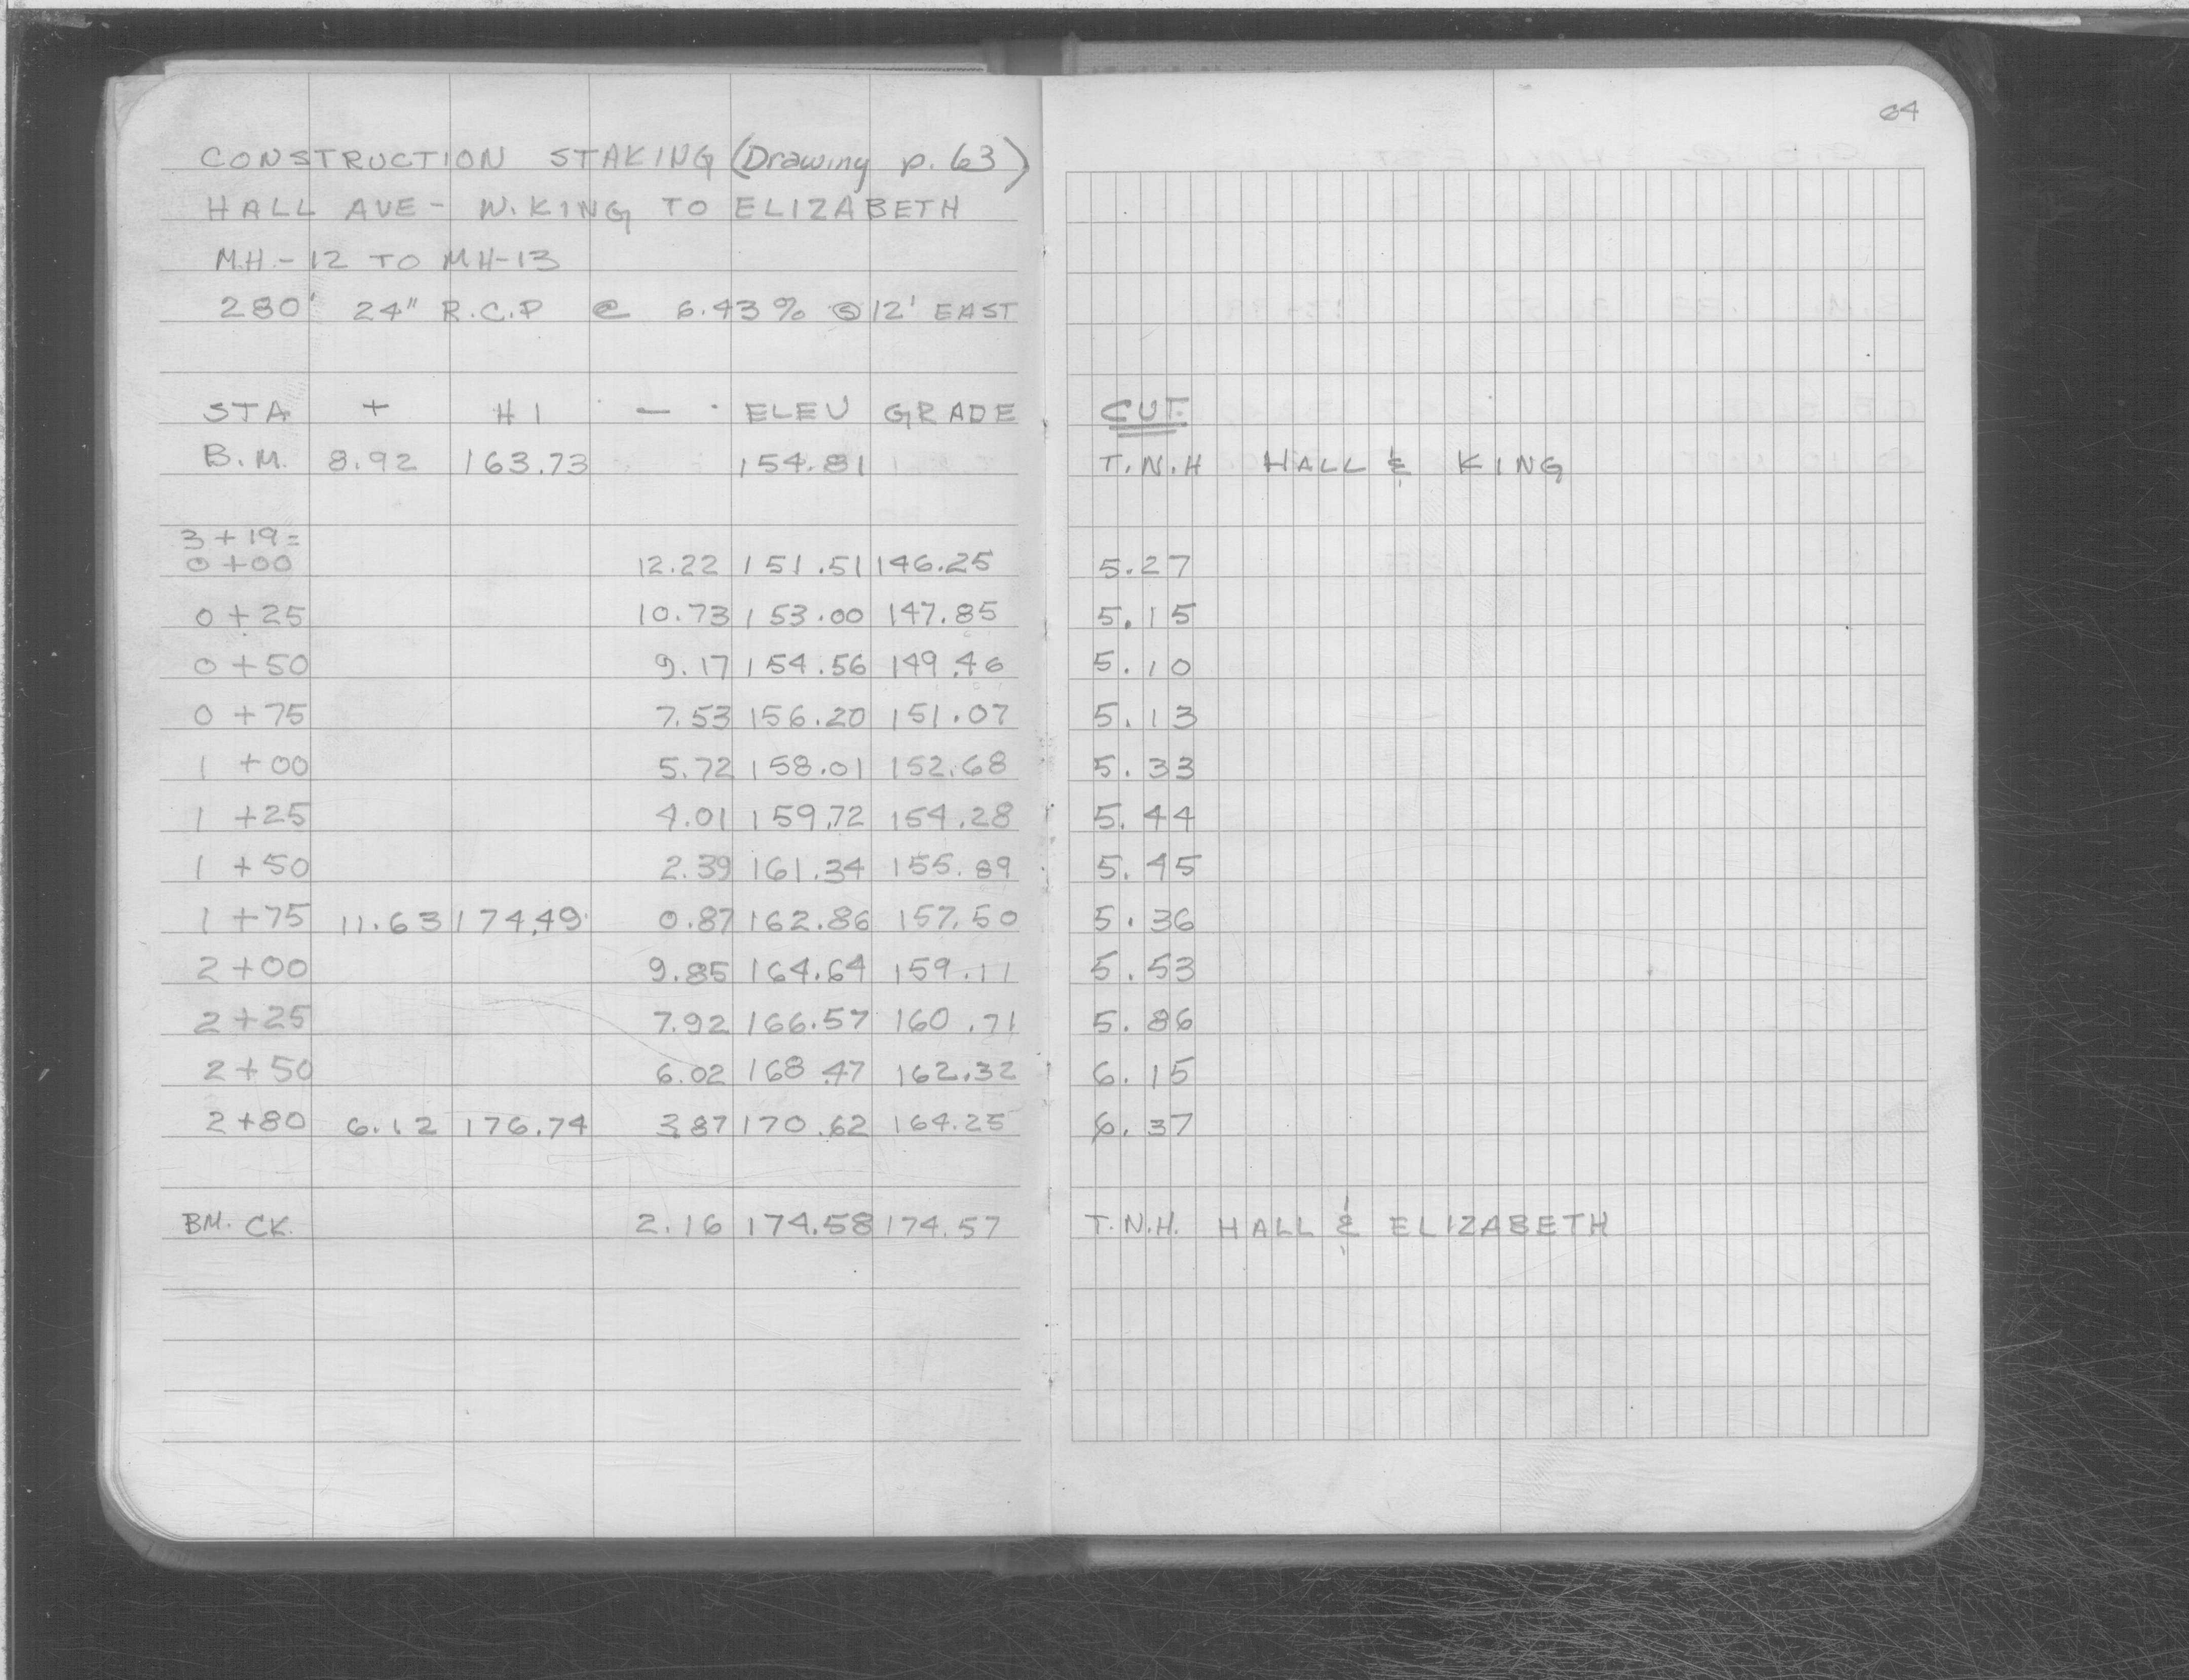 64
CONSTRUCTION STAKING (Drawing p. 63)
HALL AVE - W. KING TO ELIZABETH
M.H. - 12 TO MH-13
280' 24" R.C.P @ 6.43% @ 12' EAST
STA + HI - ELEV GRADE CUT
B.M. 8.92 163.73 154.81 T.N.H HALL & KING
3+19=
0+00 12.22 151.51 146.25 5.27
0+25 10.73 153.00 147.85 5.15
0+50 9.17 154.56 149.46 5.10
0+75 7.53 156.20 151.07 5.13
1+00 5.72 158.01 152.68 5.33
1+25 4.01 159.72 154.28 5.44
1+50 2.39 161.34 155.89 5.45
1+75 11.63 174.49 0.87 162.86 157.50 5.36
2+00 9.85 164.64 159.11 5.53
2+25 7.92 166.57 160.71 5.86
2+50 6.02 168.47 162.32 6.15
2+80 6.12 176.74 3.87 170.62 164.25 6.37
BM. CK. 2.16 174.58 174.57 T.N.H. HALL & ELIZABETH